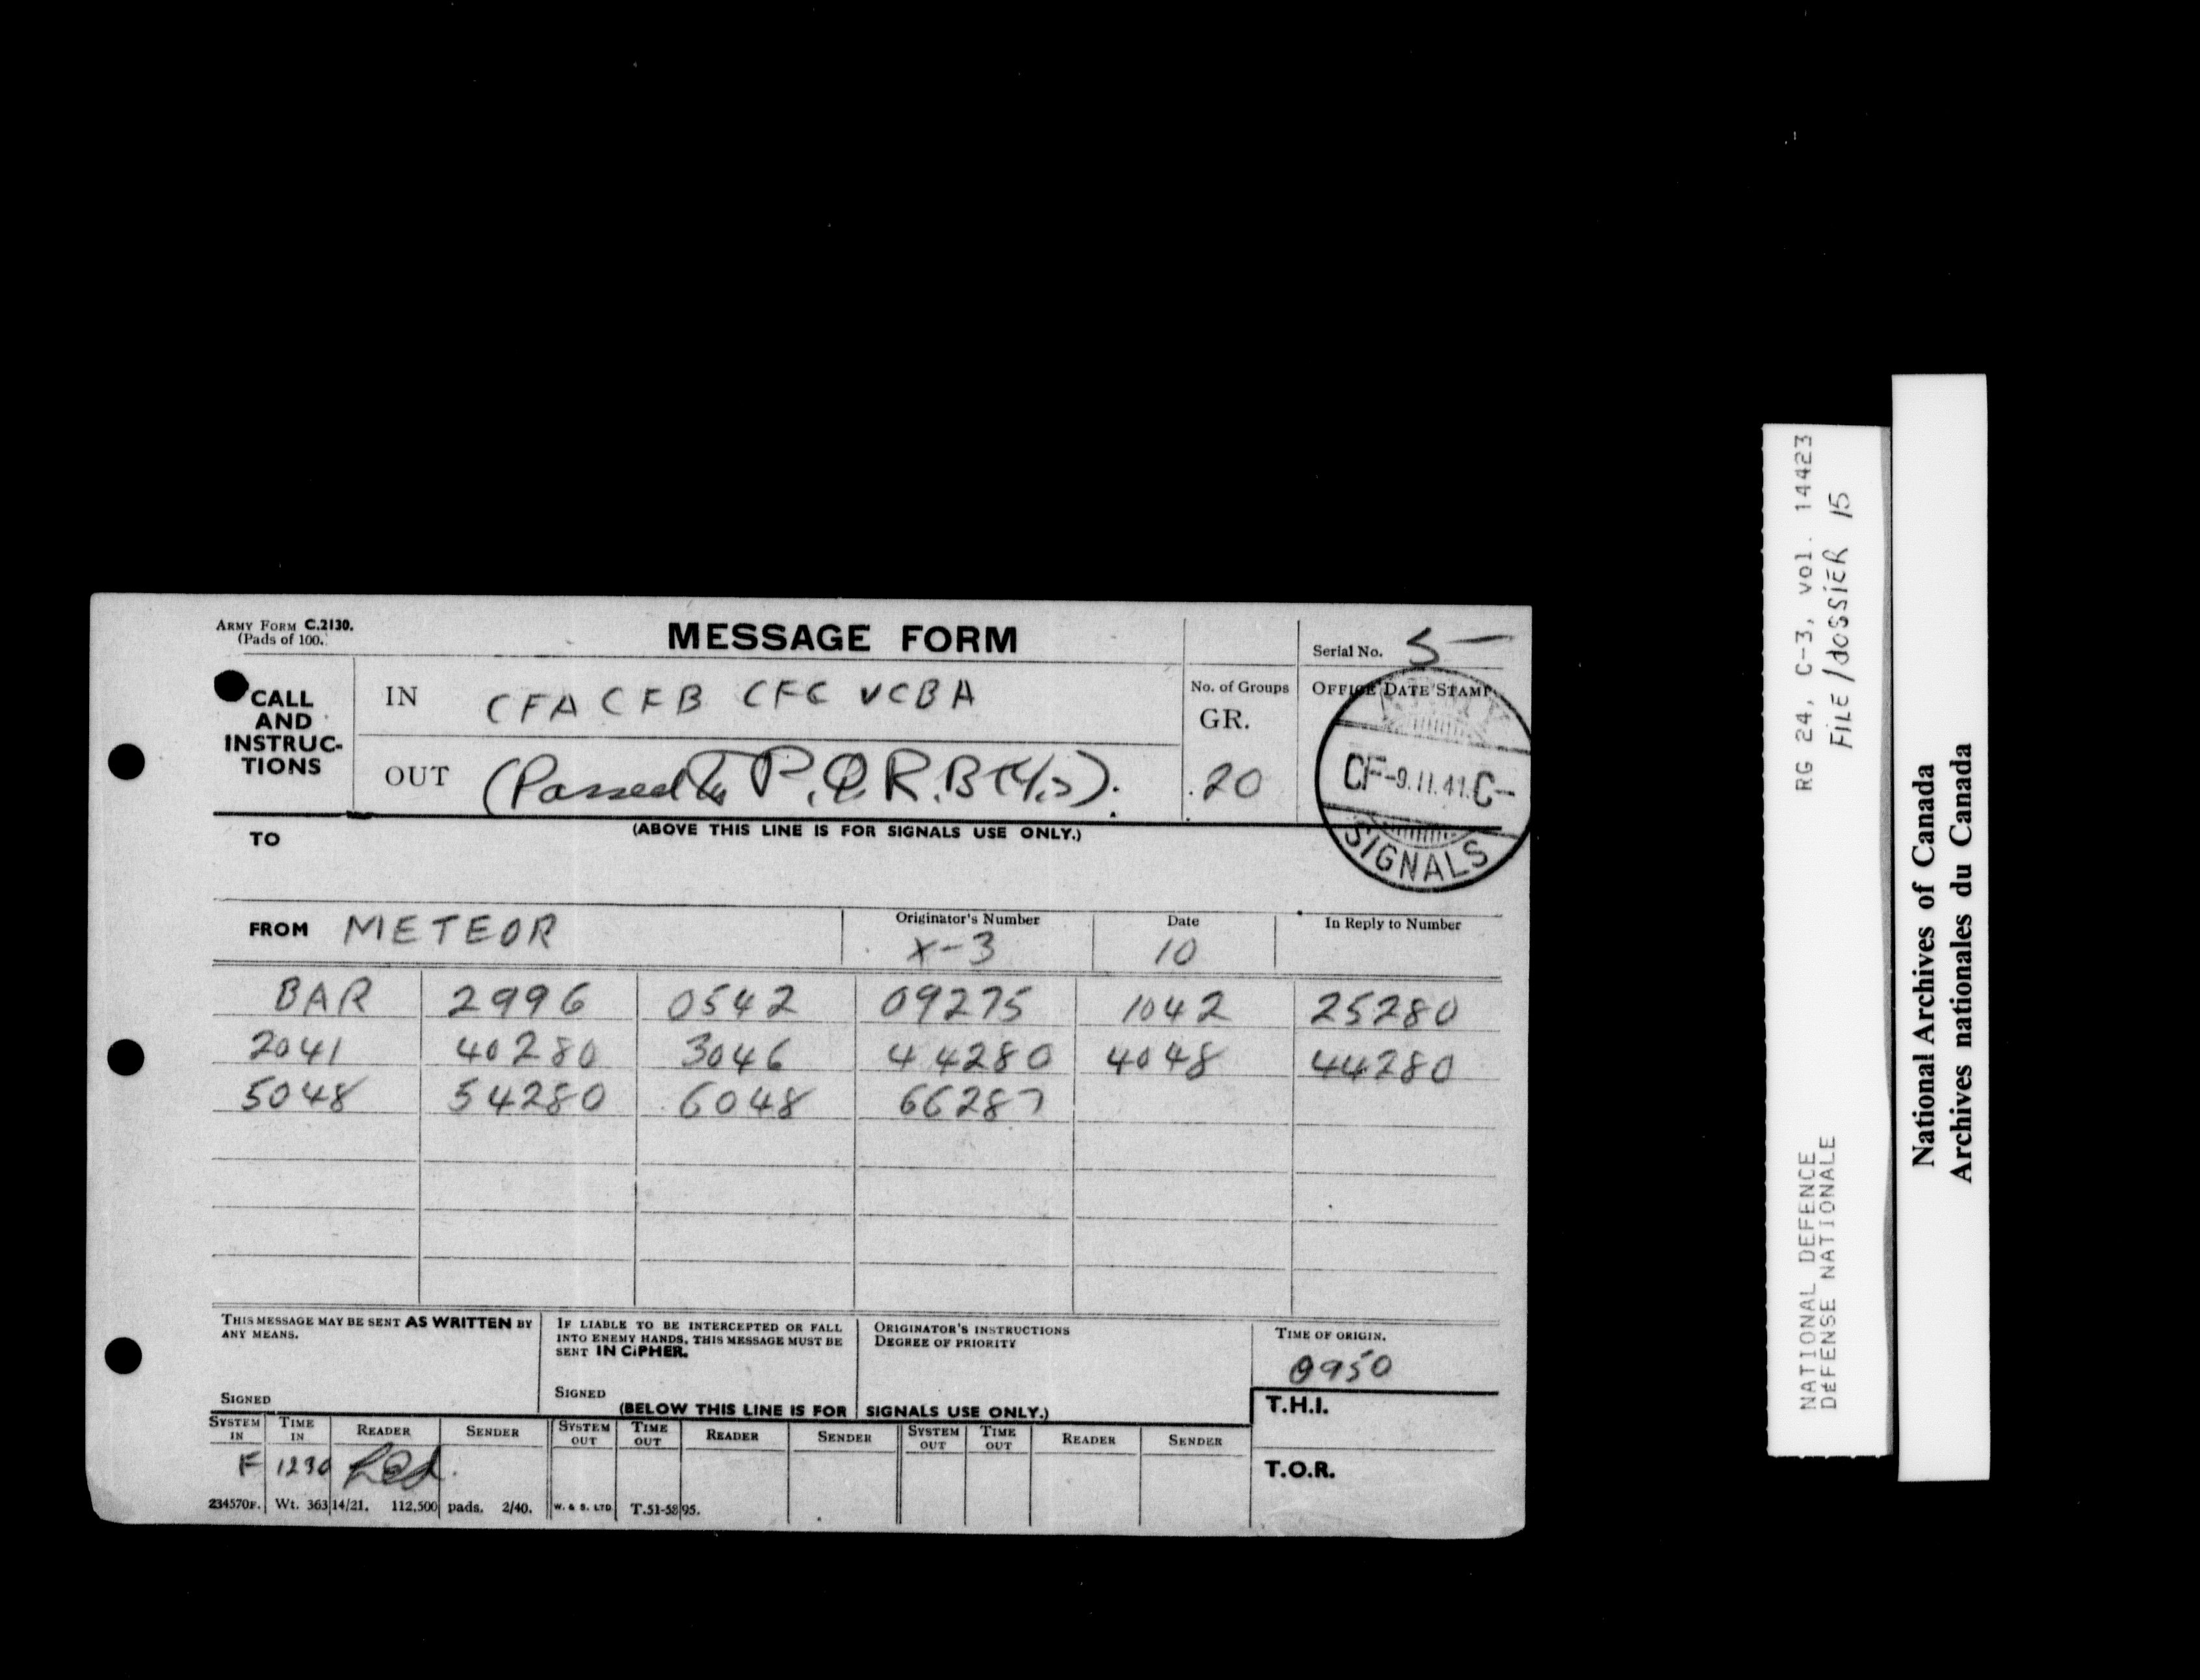 ARMY FORM C.2130.
(Pads of 100.)
MESSAGE FORM
Serial No. 5
CALL AND INSTRUC-TIONS
IN CFA CFB CFC VCBA
No. of Groups
GR.
20
OFFICE DATE STAMP
CF-9.11.41.C-
SIGNALS
OUT (Passed to P.Q.R.B
(ABOVE THIS LINE IS FOR SIGNALS USE ONLY.)
TO
FROM METEOR
Originator's Number
X-3
Date
10
In Reply to Number
BAR 2996 0542 09275 1042 25280
2041 40280 3046 44280 4048 44280
5048 54280 6048 66287
THIS MESSAGE MAY BE SENT AS WRITTEN BY
ANY MEANS.
SIGNED
IF LIABLE TO BE INTERCEPTED OR FALL
INTO ENEMY HANDS, THIS MESSAGE MUST BE
SENT IN CIPHER.
SIGNED
ORIGINATOR'S INSTRUCTIONS
DEGREE OF PRIORITY
TIME OF ORIGIN.
0950
(BELOW THIS LINE IS FOR SIGNALS USE ONLY.)
T.H.I.
T.O.R.
SYSTEM IN TIME IN READER SENDER SYSTEM OUT TIME OUT READER SENDER SYSTEM OUT TIME OUT READER SENDER
F 1230
234570F. Wt. 36314/21. 112,500 pads. 2/40. W. & S. LTD. T.51-5895.
RG 24, C-3, vol. 14423
FILE/dOSSiER 15
NATIONAL DEFENCE
DEFENSE NATIONALE
National Archives of Canada
Archives nationales du Canada